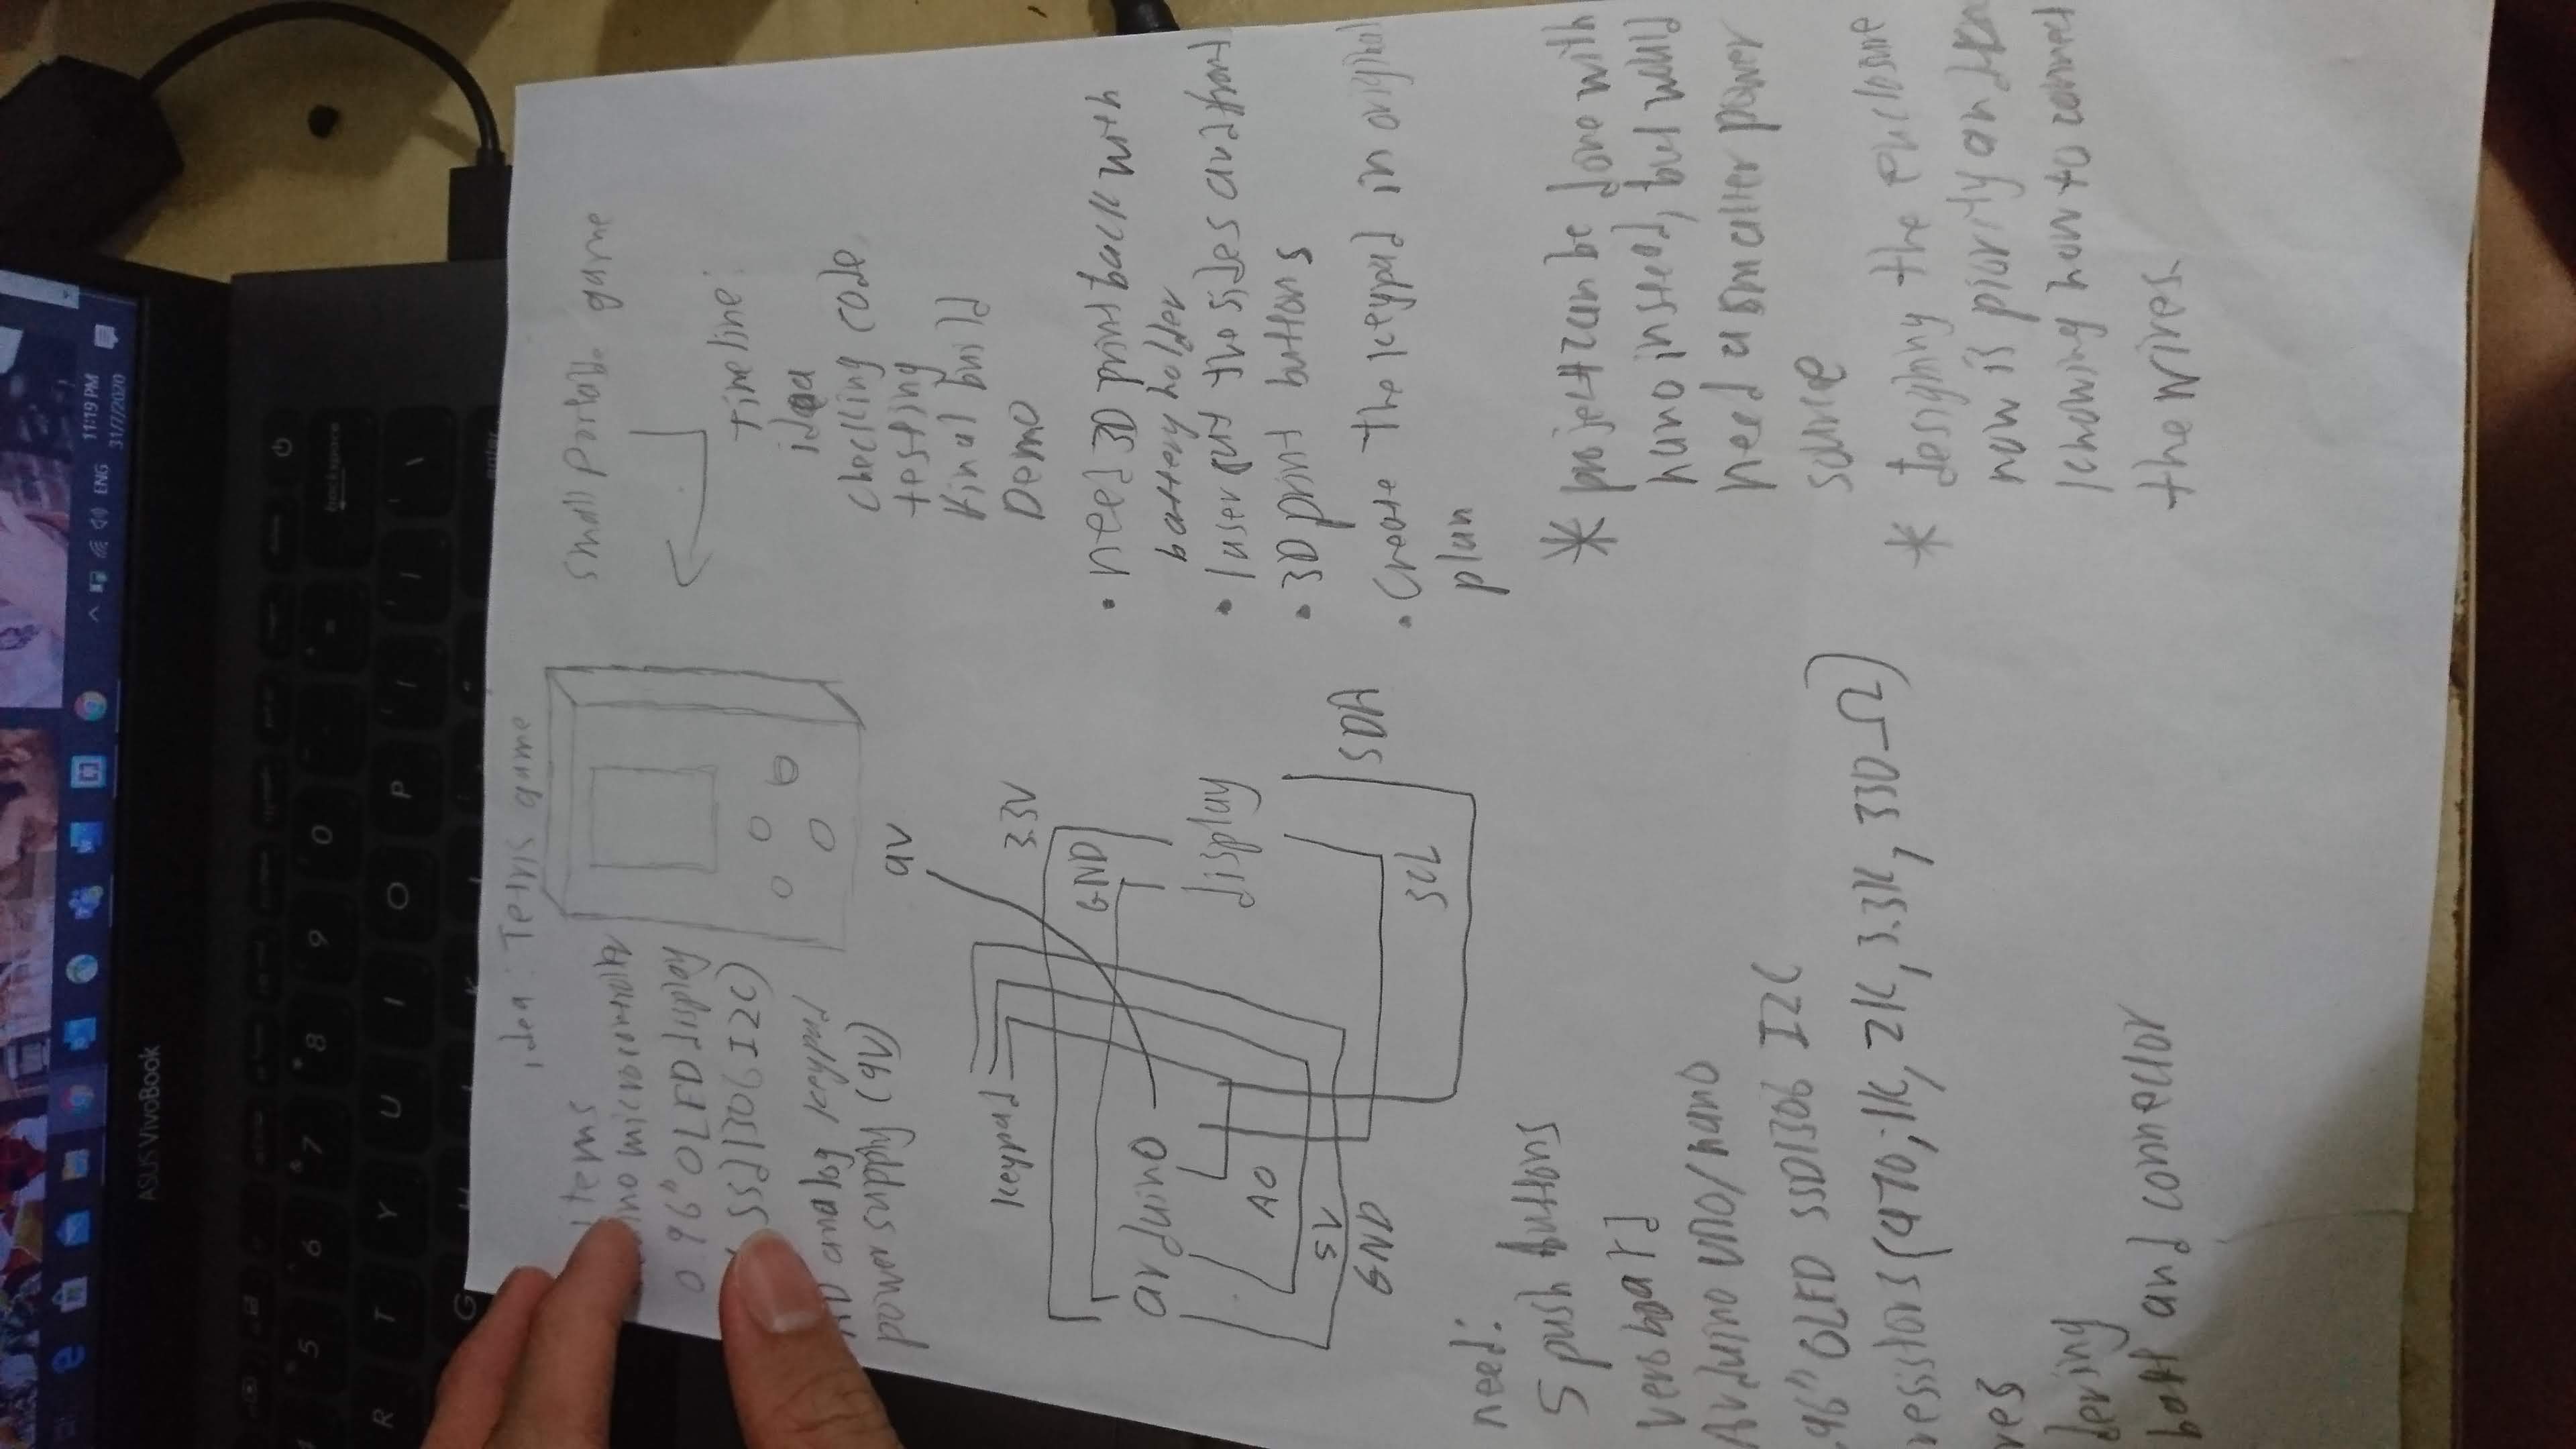 11:19 PM
ENG
31/7/2020
ASUS VivoBook
5 6 7 8 9 0 - =
backspace
R T Y U I O P
G
enter
idea: Tetris game
items
ino microcontroller
0.96" OLED display
SSD1306 I2C)
AD analog keypad
power supply (9V)
small portable game
Timeline:
idea
checking code
testing
Final build
Demo
9V
keypad
3.3V
GND
arduino
display
A0
5V
GND
SDA
SCL
• need 3D print back with
battery holder
• laser cut the sides and front
• 3D print buttons
• Create the keypad in original
plan
need:
5 push buttons
veroboard
Arduino UNO/nano
.96" OLED SSD1306 I2C
resistors (470, 1K, 2K, 3.3K, 330 Ω)
res
dering
batt and connector
* project can be done with
nano instead, but would
need a smaller power
source
* designing the enclosure
now is piority and
knowing how to connect
the wires.